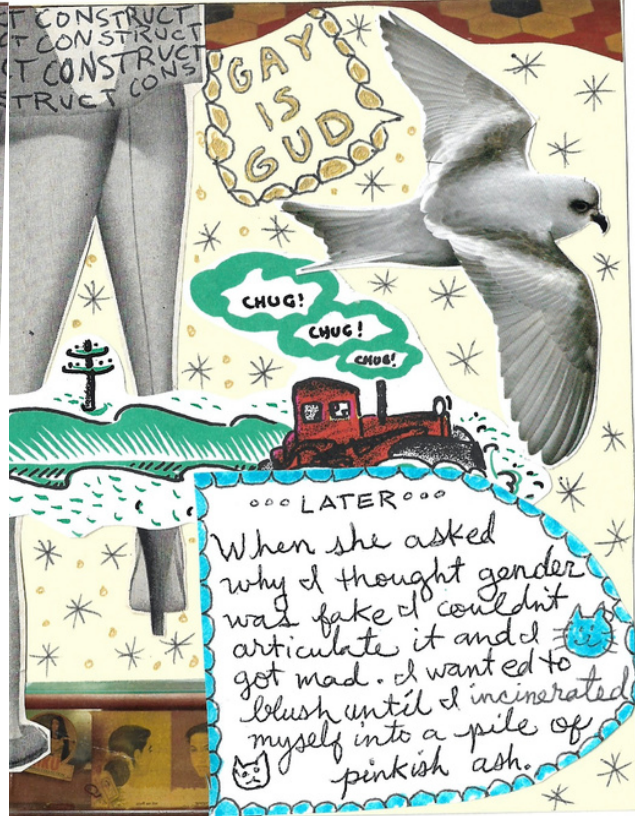 T CONSTRUCT
CT CONSTRUCT
CT CONSTRUCT
TRUCT CONS
GAY
IS
GUD
CHUG!
CHUG!
CHUG!
°°° LATER °°°
When she asked
why I thought gender
was fake I couldn't
articulate it and I
got mad. I wanted to
blush until I incinerated
myself into a pile of
pinkish ash.